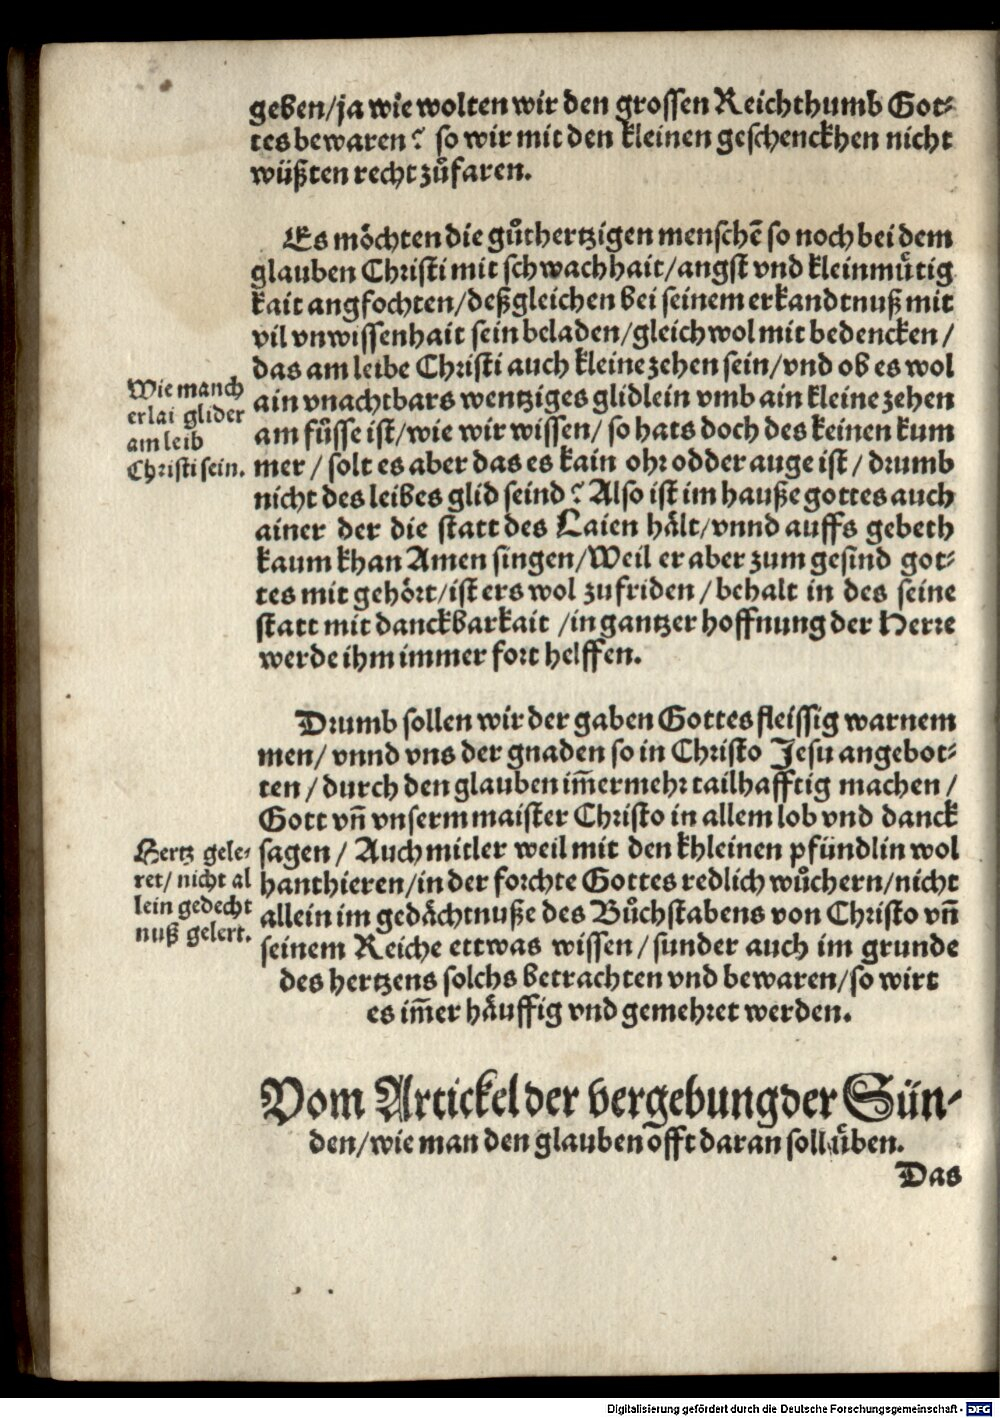 geben/ja wie wolten wir den grossen Reichthumb Got⸗
tes bewaren? so wir mit den kleinen geschenckhen nicht
wüßten recht zůfaren.
Es möchten die gůthertzigen menschē so noch bei dem
glauben Christi mit schwachhait/angst vnd kleinmůtig
kait angfochten/deßgleichen bei seinem erkandtnuß mit
vil vnwissenhait sein beladen/gleich wol mit bedencken/
das am leibe Christi auch kleine zehen sein/vnd ob es wol
ain vnachtbars wentziges glidlein vmb ain kleine zehen
am fůsse ist/wie wir wissen/ so hats doch des keinen kum
mer/ solt es aber das es kain ohr odder auge ist/ drumb
nicht des leibes glid seind? Also ist im hauße gottes auch
ainer der die statt des Laien hält/vnnd auffs gebeth
kaum khan Amen singen/Weil er aber zum gesind got⸗
tes mit gehört/ist ers wol zufriden/behalt in des seine
statt mit danckbarkait /in gantzer hoffnung der Herre
werde ihm immer fort helffen.
Wie manch
erlai glider
am leib
Christi sein.
Drumb sollen wir der gaben Gottes fleissig warnem
men/ vnnd vns der gnaden so in Christo Jesu angebot⸗
ten/ durch den glauben im̄ermehr tailhafftig machen/
Gott vn̄ vnserm maister Christo in allem lob vnd danck
sagen/ Auch mitler weil mit den khleinen pfündlin wol
hanthieren/in der forchte Gottes redlich wůchern/nicht
allein im gedächtnuße des Bůchstabens von Christo vn̄
seinem Reiche ettwas wissen/sunder auch im grunde
des hertzens solchs betrachten vnd bewaren/so wirt
es im̄er häuffig vnd gemehret werden.
Hertz gele⸗
ret/ nicht al
lein gedecht
nuß gelert.
Vom Artickel der vergebung der Sün⸗
den/wie man den glauben offt daran soll üben.
Das
Digitalisierung gefördert durch die Deutsche Forschungsgemeinschaft - DFG